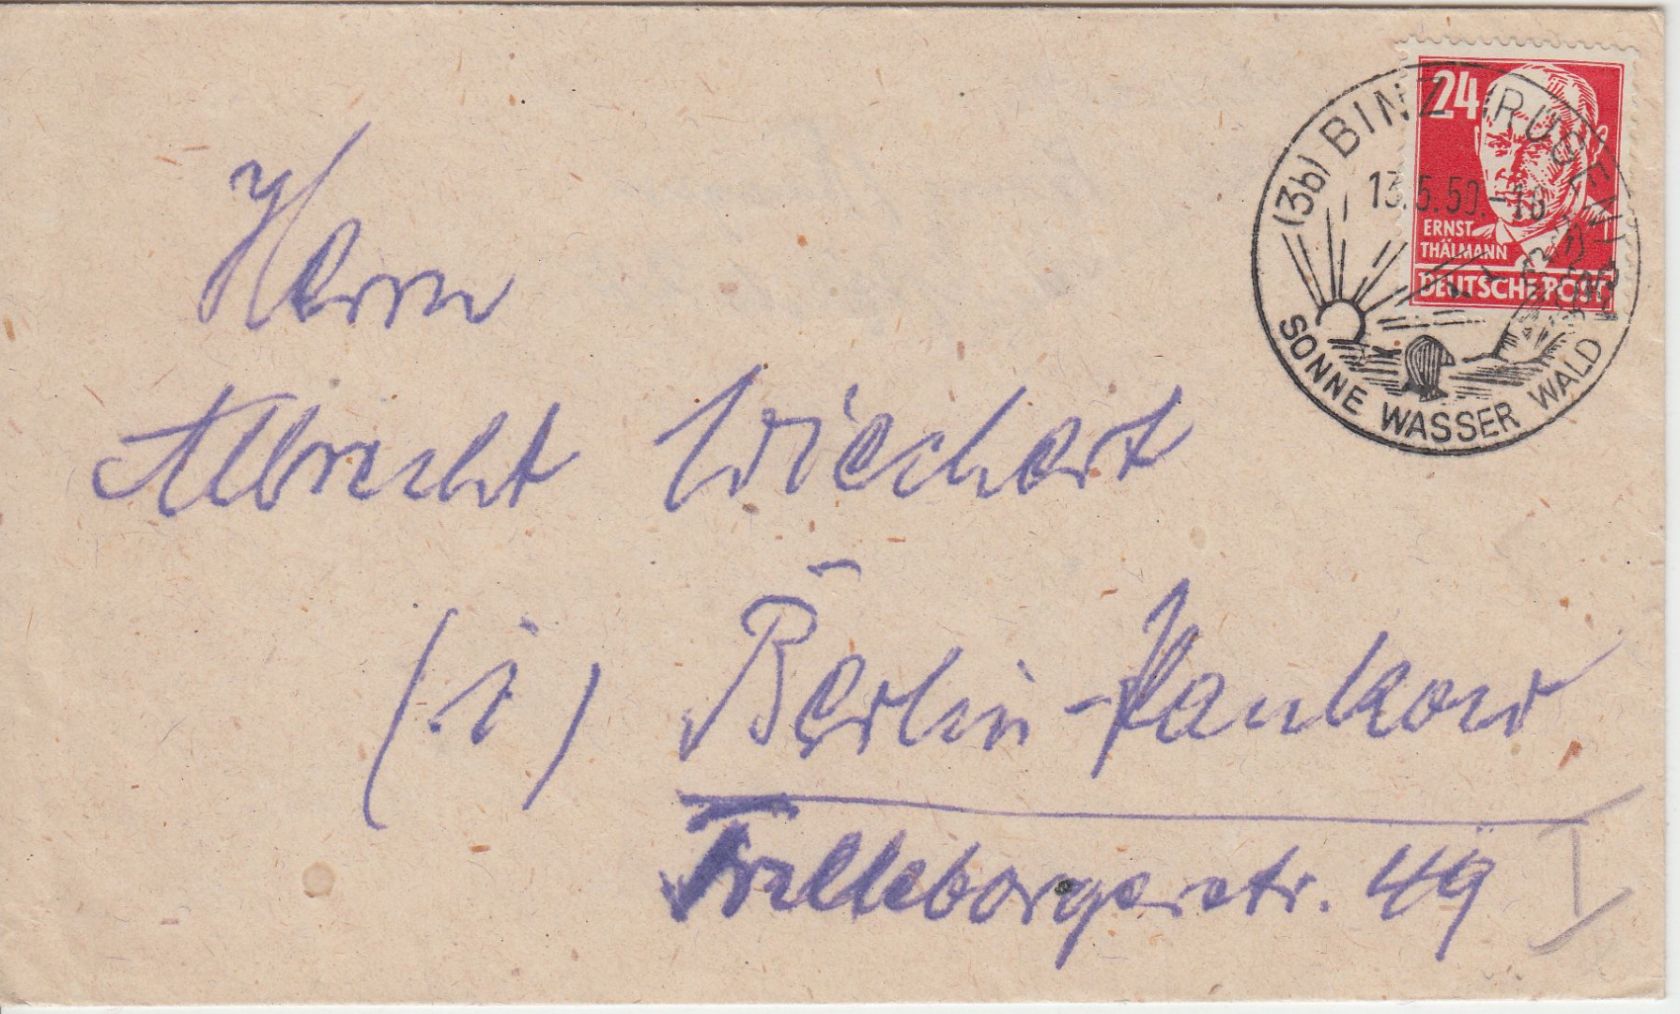 24
ERNST
THÄLMANN
DEUTSCHE POST
(3b) BINZ (RÜGEN)
13.5.50.-18
SONNE WASSER WALD
Herrn
Albrecht Wiechert
(1) Berlin-Pankow
Trelleborgerstr. 49
I